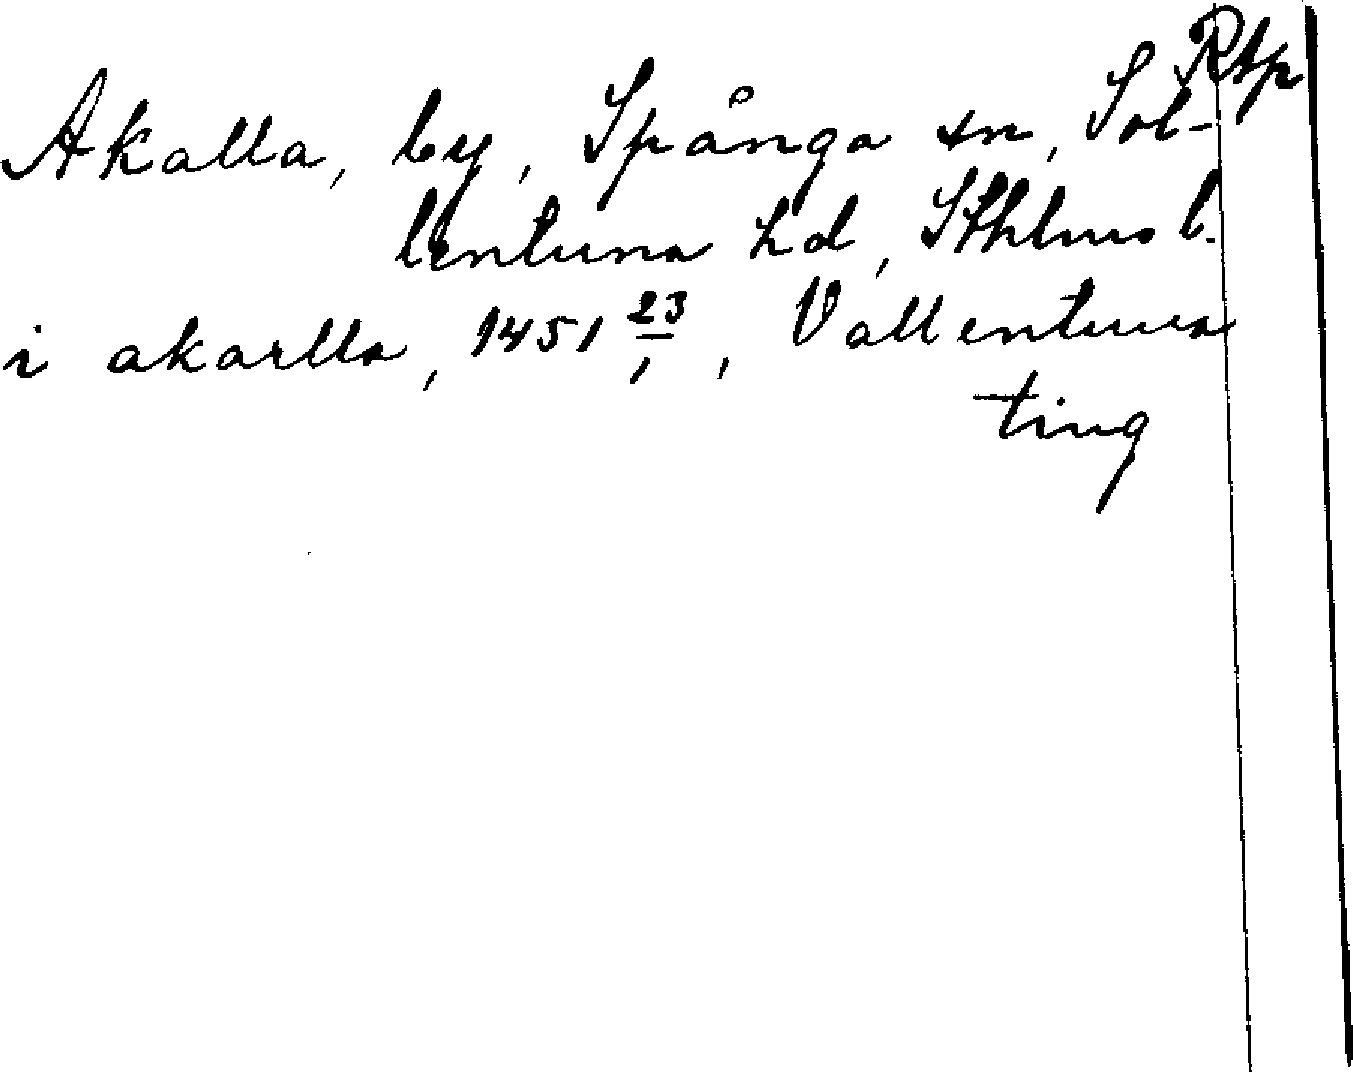 Rtp
Akalla, by, Spånga sn, Sol-
lentuna hd, Sthlms l.
i akarlla, 1451 23/1, Vallentuna
ting